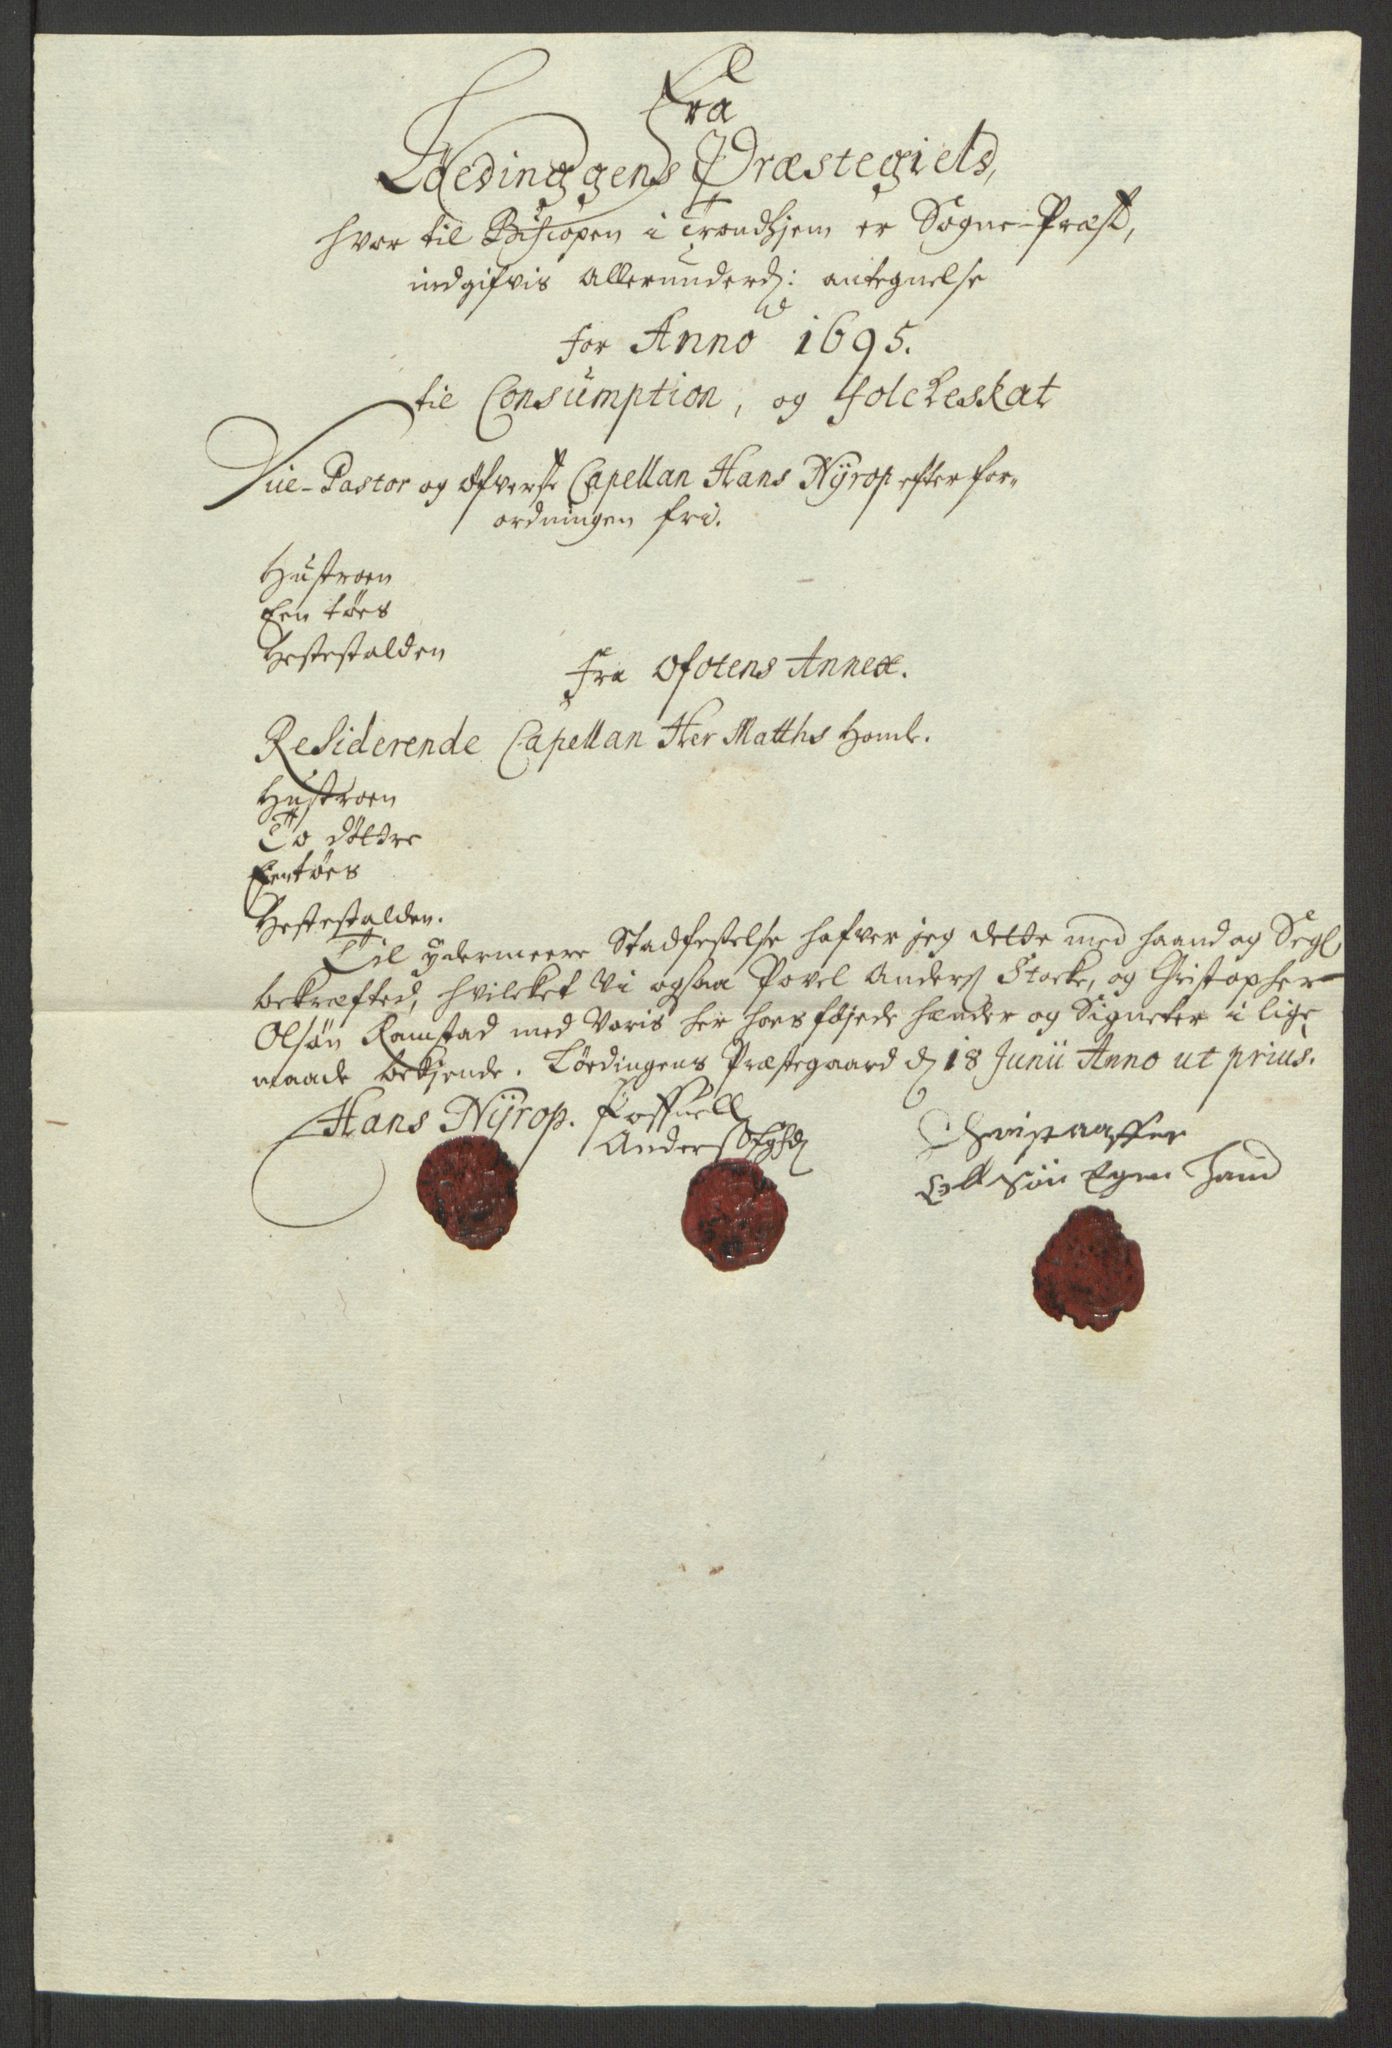 Fra
Lædinggens Præstegield,
hvor til Biscopen i Trondhjem er Sogne-Præst,
indgifvis allerunderd: antegnelse
for Anno 1695.
til Consumption, og folckeskat
Vice-Pastor og öfverste Capellan Hans Nÿrop efter for-
ordningen fri.
Hustroen
Een tøes
Hestestalden
Fra Ofotens Annex.
Residerende Capellan Her Matths
Hustroen
To döttre
Een tøes
Hestestalden.
Til ydermeere Stadfestelse hafver jeg dette med haand og Segl
bekræfted, hvilcket vi ogsaa Povel Anders Stocke, og Christopher
Olsøn Ramstad med Voris her hoes føjede hænder og Signeter i lige
maade bekjende. Löedingens Præstegaard d 18 Junii Anno ut prius.
Hans Nÿrop.
Anders
Christaaffer
søn Egen Hand